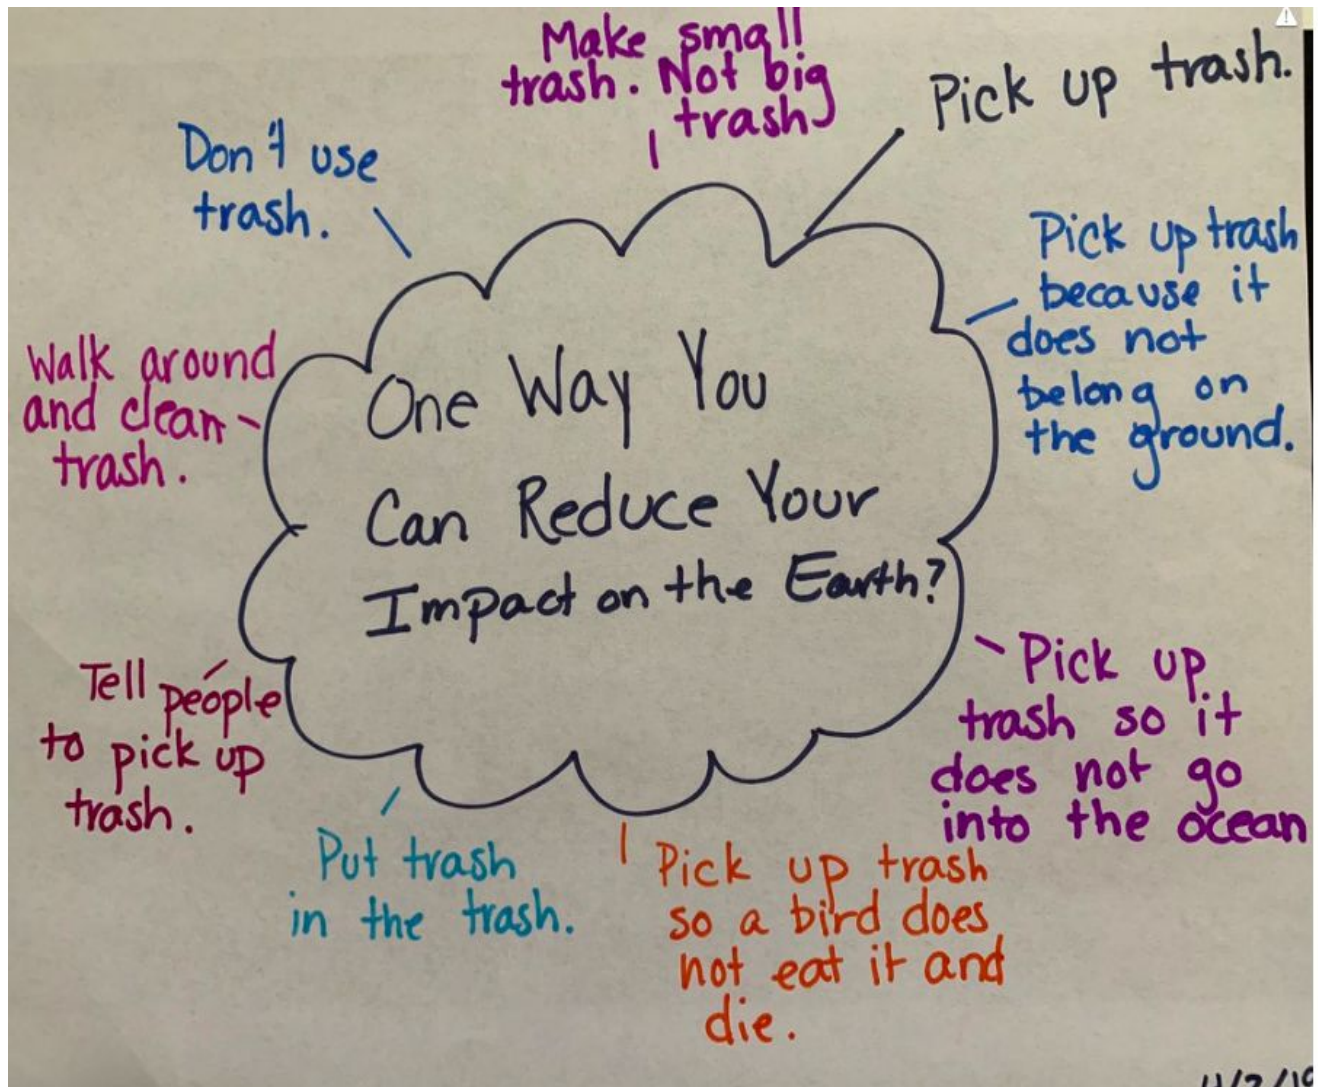 Make small
trash. Not big
trash
Pick up trash.
Don't use
trash.
Pick up trash
because it
does not
belong on
the ground.
Walk around
and clean
trash.
One Way You
Can Reduce Your
Impact on the Earth?
Tell people
to pick up
trash.
Pick up
trash so it
does not go
into the ocean
Put trash
in the trash.
Pick up trash
so a bird does
not eat it and
die.